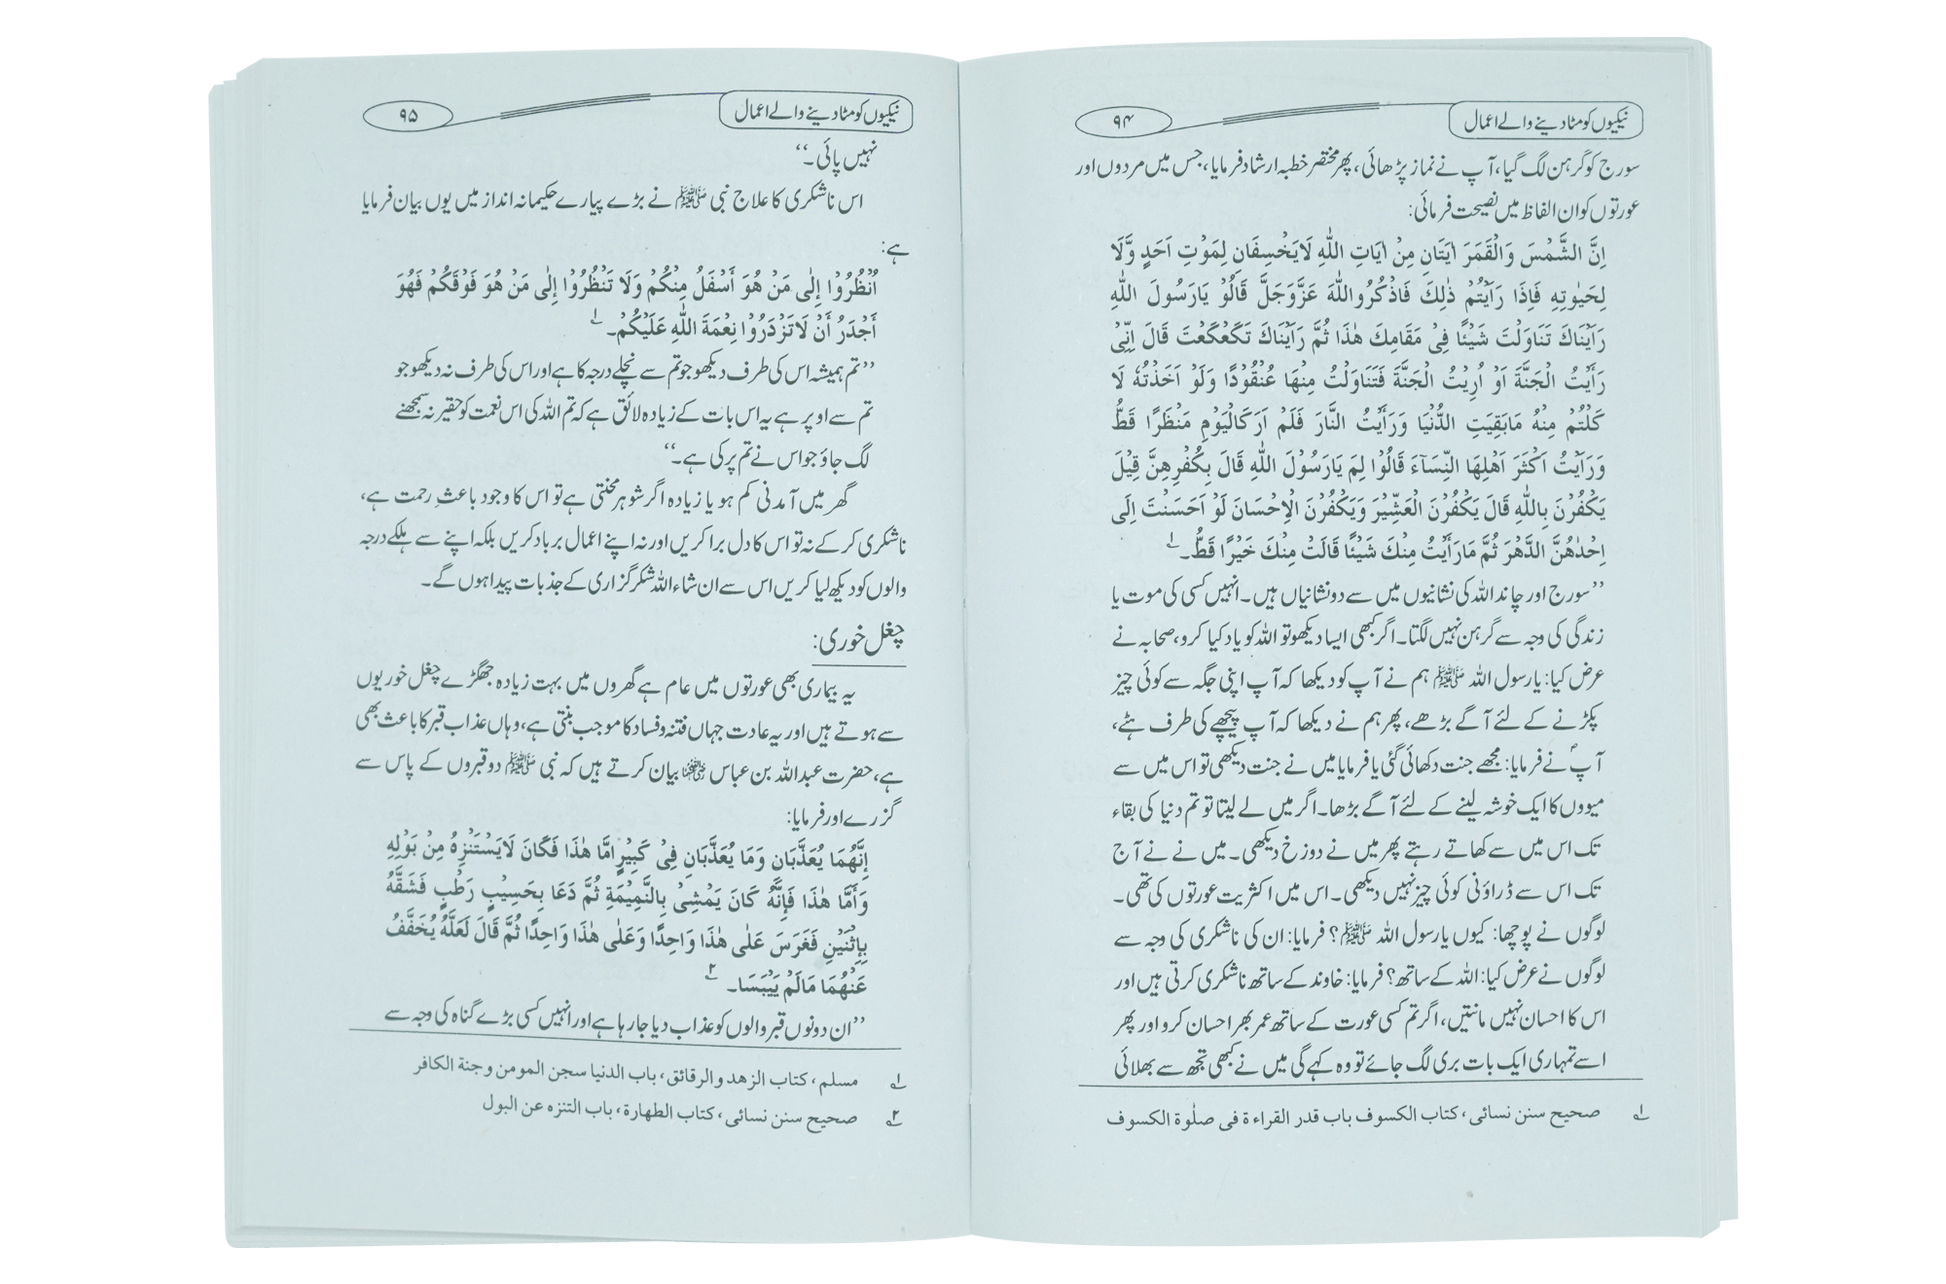 نیکیوں کو مٹا دینے والے اعمال
۹۴
سورج کو گرہن لگ گیا، آپ نے نماز پڑھائی، پھر مختصر خطبہ ارشاد فرمایا، جس میں مردوں اور
عورتوں کو ان الفاظ میں نصیحت فرمائی:
اِنَّ الشَّمْسَ وَالْقَمَرَ اٰيَتَانِ مِنْ اٰيَاتِ اللّٰهِ لَايَخْسِفَانِ لِمَوْتِ اَحَدٍ وَّلَا
لِحَيٰوتِهٖ فَاِذَا رَاَيْتُمْ ذٰلِكَ فَاذْكُرُواللّٰهَ عَزَّوَجَلَّ قَالُوْ يَارَسُولَ اللّٰهِ
رَاَيْنَاكَ تَنَاوَلْتَ شَيْئًا فِىْ مَقَامِكَ هٰذَا ثُمَّ رَاَيْنَاكَ تَكَعْكَعْتَ قَالَ اِنِّىْ
رَأَيْتُ الْجَنَّةَ اَوْ اُرِيْتُ الْجَنَّةَ فَتَنَاوَلْتُ مِنْهَا عُنْقُوْدًا وَلَوْ اَخَذْتُهٗ لَا
كَلْتُمْ مِنْهُ مَابَقِيَتِ الدُّنْيَا وَرَأَيْتُ النَّارَ فَلَمْ اَرَكَالْيَوْمِ مَنْظَرًا قَطُّ
وَرَاَيْتُ اَكْثَرَ اَهْلِهَا النِّسَآءَ قَالُوْا لِمَ يَارَسُوْلَ اللّٰهِ قَالَ بِكُفْرِهِنَّ قِيْلَ
يَكْفُرْنَ بِاللّٰهِ قَالَ يَكْفُرْنَ الْعَشِّيْرَ وَيَكْفُرْنَ الْاِحْسَانَ لَوْ اَحْسَنْتَ اِلَى
اِحْدٰهُنَّ الدَّهْرَ ثُمَّ مَارَأَيْتُ مِنْكَ شَيْئًا قَالَتْ مِنْكَ خَيْرًا قَطُّ۔ ۱
’’سورج اور چاند اللہ کی نشانیوں میں سے دو نشانیاں ہیں۔ انہیں کسی کی موت یا
زندگی کی وجہ سے گرہن نہیں لگتا۔ اگر کبھی ایسا دیکھو تو اللہ کو یاد کیا کرو، صحابہ نے
عرض کیا: یا رسول اللہ ﷺ ہم نے آپ کو دیکھا کہ آپ اپنی جگہ سے کوئی چیز
پکڑنے کے لئے آگے بڑھے، پھر ہم نے دیکھا کہ آپ پیچھے کی طرف ہٹے،
آپؐ نے فرمایا: مجھے جنت دکھائی گئی یا فرمایا میں نے جنت دیکھی تو اس میں سے
میووں کا ایک خوشہ لینے کے لئے آگے بڑھا۔ اگر میں لے لیتا تو تم دنیا کی بقاء
تک اس میں سے کھاتے رہتے پھر میں نے دوزخ دیکھی۔ میں نے نے آج
تک اس سے ڈراؤنی کوئی چیز نہیں دیکھی۔ اس میں اکثریت عورتوں کی تھی۔
لوگوں نے پوچھا: کیوں یا رسول اللہ ﷺ؟ فرمایا: ان کی ناشکری کی وجہ سے
لوگوں نے عرض کیا: اللہ کے ساتھ؟ فرمایا: خاوند کے ساتھ ناشکری کرتی ہیں اور
اس کا احسان نہیں مانتیں، اگر تم کسی عورت کے ساتھ عمر بھر احسان کرو اور پھر
اسے تمہاری ایک بات بری لگ جائے تو وہ کہے گی میں نے کبھی تجھ سے بھلائی
۱ صحیح سنن نسائی، کتاب الکسوف باب قدر القراءة فی صلٰوة الکسوف
نیکیوں کو مٹا دینے والے اعمال
۹۵
نہیں پائی۔‘‘
اس ناشکری کا علاج نبی ﷺ نے بڑے پیارے حکیمانہ انداز میں یوں بیان فرمایا
ہے:
اُنْظُرُوْا اِلٰى مَنْ هُوَ أَسْفَلُ مِنْكُمْ وَلَا تَنْظُرُوْا اِلٰى مَنْ هُوَ فَوْقَكُمْ فَهُوَ
أَجْدَرُ أَنْ لَاتَزْدَرُوْا نِعْمَةَ اللّٰهِ عَلَيْكُمْ۔ ۱
’’تم ہمیشہ اس کی طرف دیکھو جو تم سے نچلے درجہ کا ہے اور اس کی طرف نہ دیکھو جو
تم سے اوپر ہے یہ اس بات کے زیادہ لائق ہے کہ تم اللہ کی اس نعمت کو حقیر نہ سمجھنے
لگ جاؤ جو اس نے تم پر کی ہے۔‘‘
گھر میں آمدنی کم ہو یا زیادہ اگر شوہر محنتی ہے تو اس کا وجود باعثِ رحمت ہے،
ناشکری کر کے نہ تو اس کا دل برا کریں اور نہ اپنے اعمال برباد کریں بلکہ اپنے سے ہلکے درجہ
والوں کو دیکھ لیا کریں اس سے ان شاء اللہ شکر گزاری کے جذبات پیدا ہوں گے۔
چغل خوری:
یہ بیماری بھی عورتوں میں عام ہے گھروں میں بہت زیادہ جھگڑے چغل خوریوں
سے ہوتے ہیں اور یہ عادت جہاں فتنہ و فساد کا موجب بنتی ہے، وہاں عذاب قبر کا باعث بھی
ہے، حضرت عبداللہ بن عباس رضی اللہ عنہما بیان کرتے ہیں کہ نبی ﷺ دو قبروں کے پاس سے
گزرے اور فرمایا:
إِنَّهُمَا يُعَذَّبَانِ وَمَا يُعَذَّبَانِ فِىْ كَبِيْرٍ امَّا هٰذَا فَكَانَ لَايَسْتَنْزِهُ مِنْ بَوْلِهٖ
وَأَمَّا هٰذَا فَإِنَّهُ كَانَ يَمْشِىْ بِالنَّمِيْمَةِ ثُمَّ دَعَا بِحَسِيْبٍ رَطْبٍ فَشَقَّهُ
بِاِثْنَيْنِ فَغَرَسَ عَلٰى هٰذَا وَاحِدًا وَعَلٰى هٰذَا وَاحِدًا ثُمَّ قَالَ لَعَلَّهُ يُخَفَّفُ
عَنْهُمَا مَالَمْ يَيْبَسَا۔ ۲
’’ان دونوں قبر والوں کو عذاب دیا جا رہا ہے اور انہیں کسی بڑے گناہ کی وجہ سے
۱ مسلم، کتاب الزهد والرقائق، باب الدنیا سجن المومن وجنة الکافر
۲ صحیح سنن نسائی، کتاب الطهارة، باب التنزه عن البول